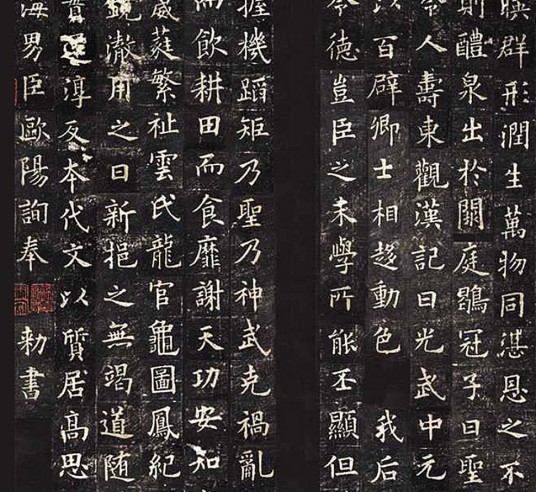 暎群形潤生萬物同湛恩之不
則醴泉出於闕庭鶡冠子曰聖
令人壽東觀漢記曰光武中元
以百辟卿士相趍動色 我后
令德豈臣之末學所能丕顯但
握機蹈矩乃聖乃神武克禍亂
而飲耕田而食靡謝天功安知
葳蕤繁祉雲氏龍官龜圖鳳紀
鏡澈用之日新挹之無竭道随
還淳反本代文以質居高思
海男臣歐陽詢奉 勅書